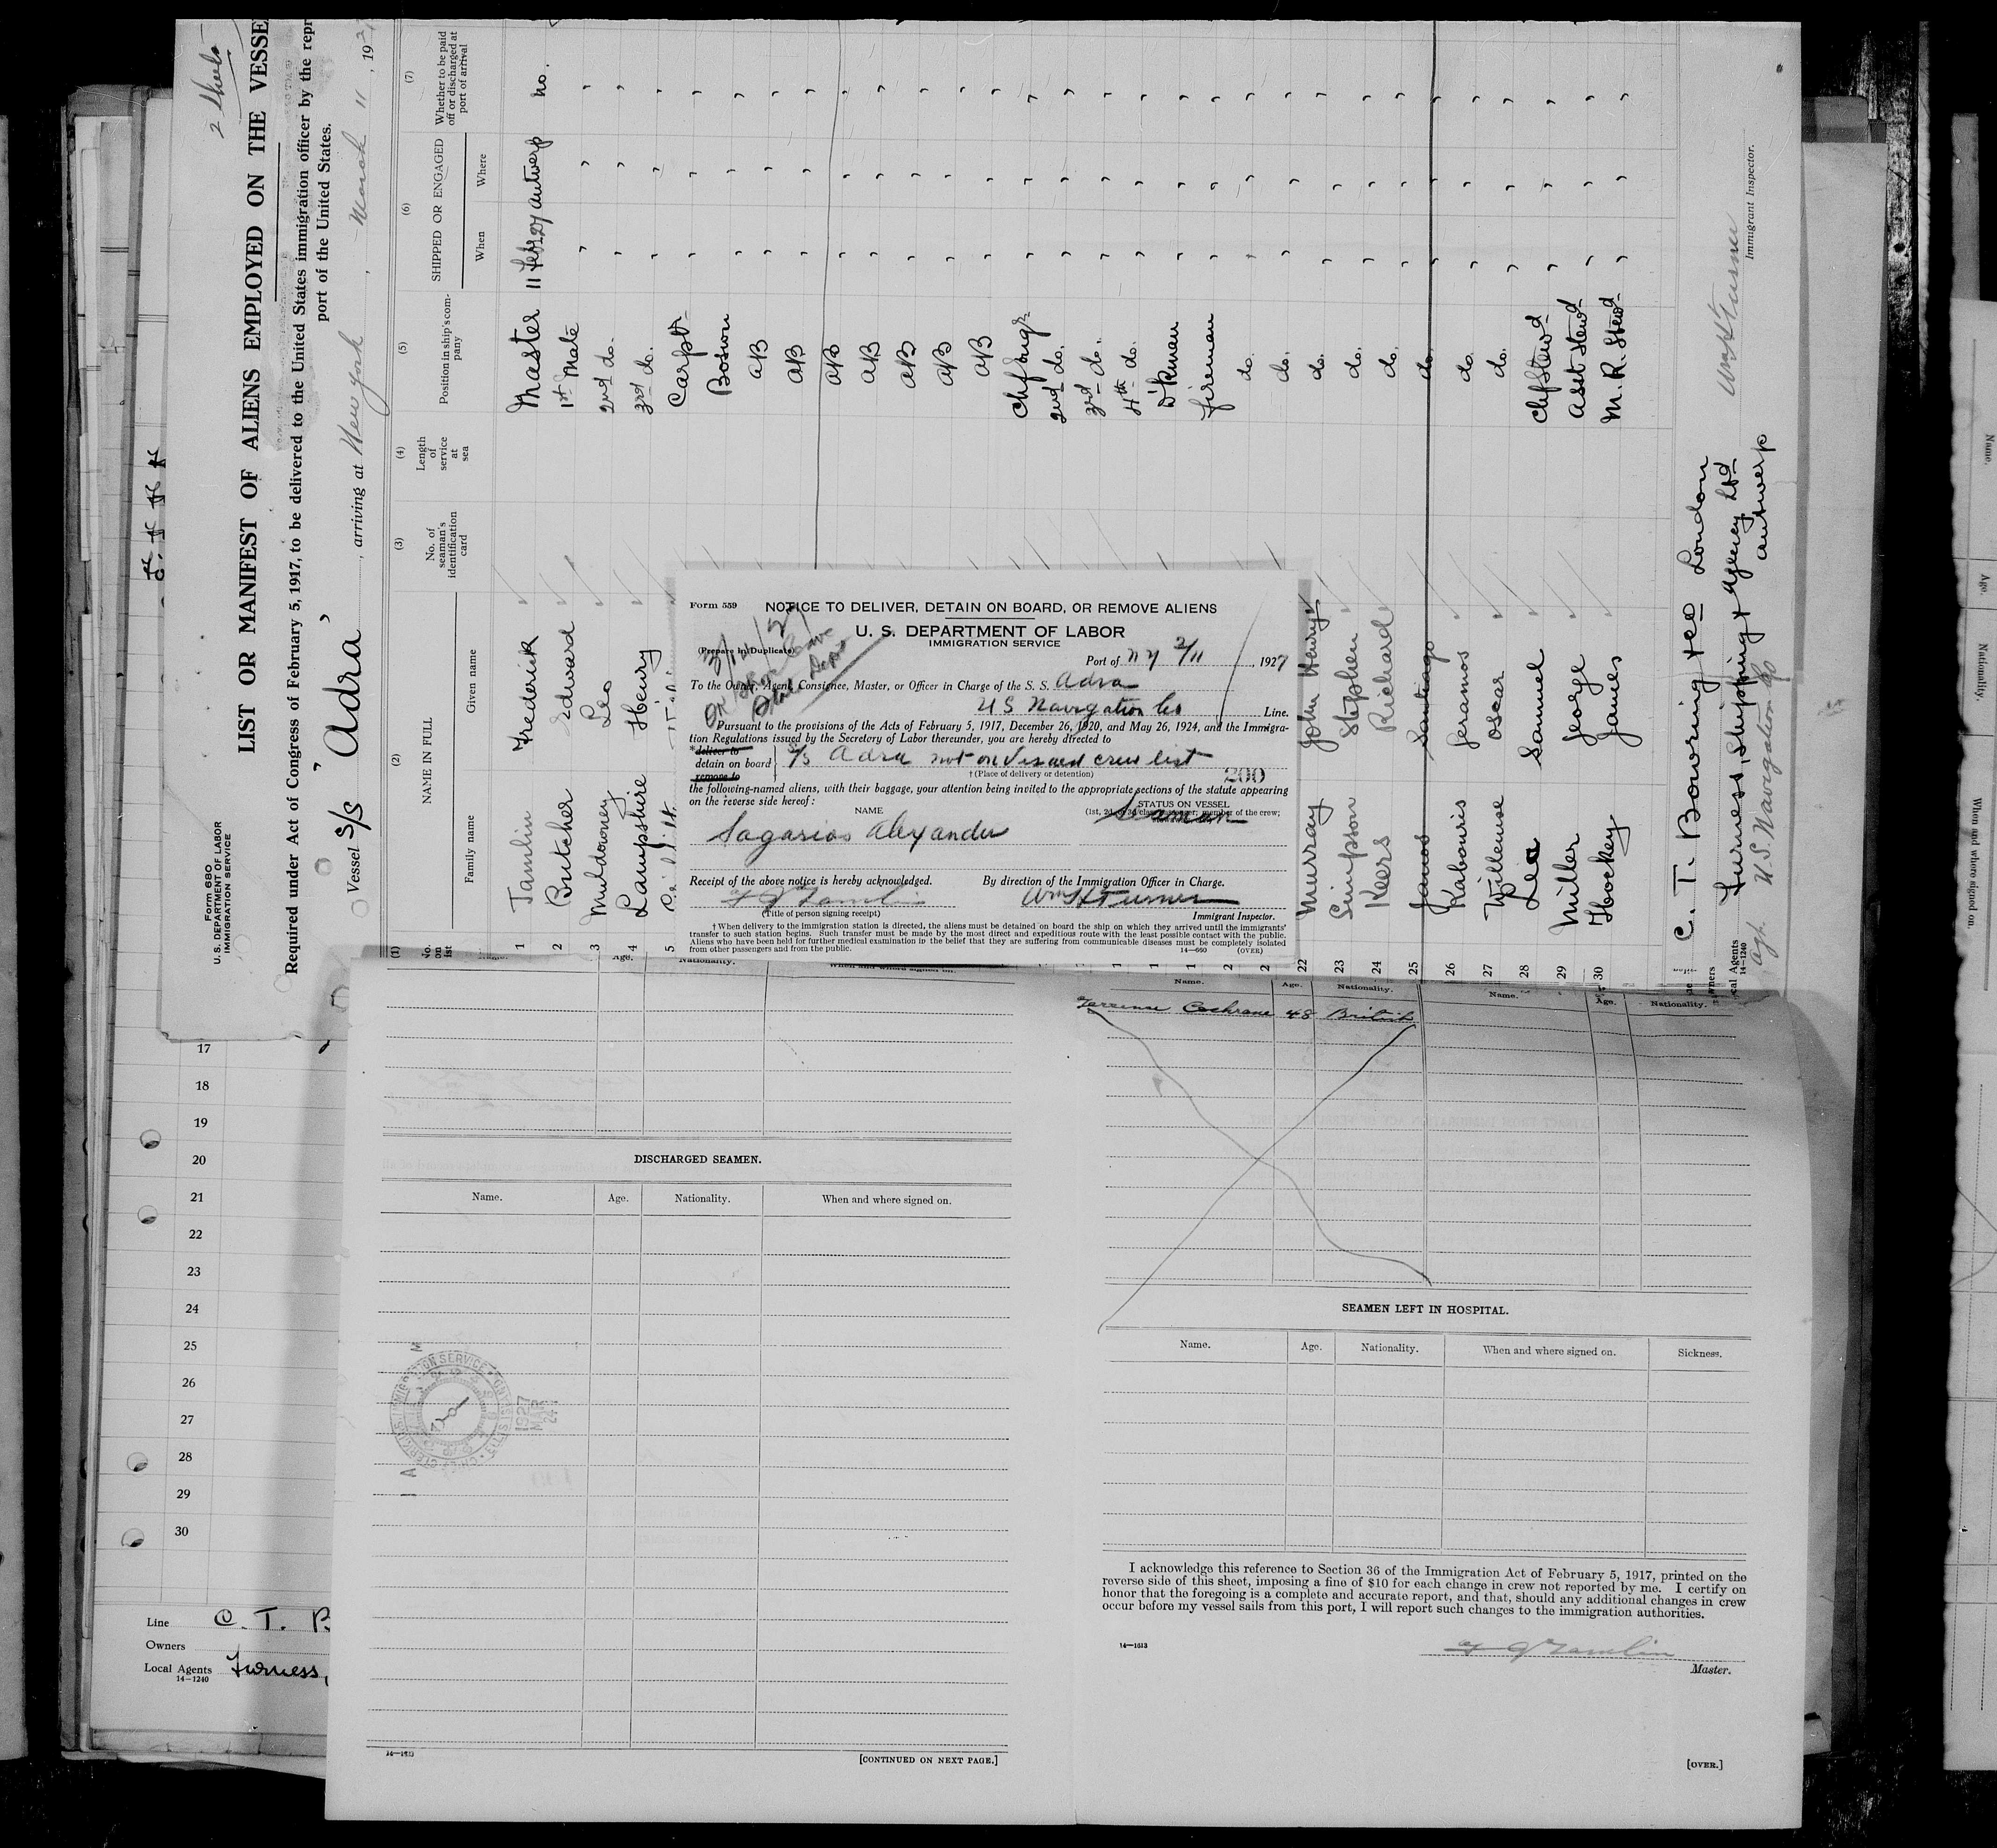 2 Sheets
Form 680
U. S. DEPARTMENT OF LABOR
IMMIGRATION SERVICE
LIST OR MANIFEST OF ALIENS EMPLOYED ON THE VESSE
Required under Act of Congress of February 5, 1917, to be delivered to the United States immigration officer by the repr
port of the United States.
Vessel S/S "Adra", arriving at New York, March 11, 192
(1) (2) (3) (4) (5) (6) (7)
No. on list
NAME IN FULL
Family name Given name
No. of seaman's identification card
Length of service at sea
Position in ship's company
SHIPPED OR ENGAGED
When Where
Whether to be paid off or discharged at port of arrival
1 Tamlin Frederick Master 11 Feb. 27 Antwerp no.
2 Butcher Edward 1st Mate " " "
3 Muldowney Leo 2nd do. " " "
4 Lampshire Henry 3rd do. " " "
5 Carpstr " " "
Boswn " " "
AB " " "
AB " " "
AB " " "
AB " " "
AB " " "
AB " " "
AB " " "
Chf Engr " " "
2nd do. " " "
3rd do. " " "
4th do. " " "
D'kman " " "
Fireman " " "
do. " " "
do. " " "
22 Murray John Henry do. " " "
23 Simpson Stephen do. " " "
24 Keers Richard do. " " "
25 Janos Santiago do. " " "
26 Kabouris Geramos do. " " "
27 Willemse Oscar do. " " "
28 Lee Samuel Chf Stewd " " "
29 Miller George Asst Stewd " " "
30 Hockey James M. R. Stewd " " "
C. T. Bowring & Co London
Owners
Local Agents Furness, Shipping & Agency Ltd Antwerp
14-1240
Agt. U.S. Navigation Co
Wm H Turner
Immigrant Inspector.
Form 559
NOTICE TO DELIVER, DETAIN ON BOARD, OR REMOVE ALIENS
U. S. DEPARTMENT OF LABOR
IMMIGRATION SERVICE
(Prepare in Duplicate)
Port of NY 3/11, 1927
To the Owner, Agent, Consignee, Master, or Officer in Charge of the S. S. Adra
US Navigation Co Line.
Pursuant to the provisions of the Acts of February 5, 1917, December 26, 1920, and May 26, 1924, and the Immigra-
tion Regulations issued by the Secretary of Labor thereunder, you are hereby directed to
*deliver to
detain on board S/S Adra not on Visaed crew list
remove to
†(Place of delivery or detention)
200
the following-named aliens, with their baggage, your attention being invited to the appropriate sections of the statute appearing
on the reverse side hereof:
NAME
STATUS ON VESSEL
(1st, 2d, or 3d class passenger; member of the crew;
Sagarias Alexander Seaman
Receipt of the above notice is hereby acknowledged. By direction of the Immigration Officer in Charge.
F J Tamlin Wm H Turner
(Title of person signing receipt) Immigrant Inspector.
† When delivery to the immigration station is directed, the aliens must be detained on board the ship on which they arrived until the immigrants'
transfer to such station begins. Such transfer must be made by the most direct and expeditious route with the least possible contact with the public.
Aliens who have been held for further medical examination in the belief that they are suffering from communicable diseases must be completely isolated
from other passengers and from the public.
14—660 (OVER)
Age. Nationality. When and where signed on.
Name. Age. Nationality. Name. Age. Nationality.
Cochrane 48 British
DISCHARGED SEAMEN.
Name. Age. Nationality. When and where signed on.
IMMIGRATION SERVICE
ELLIS ISLAND
1927
MAR
24
[CONTINUED ON NEXT PAGE.]
SEAMEN LEFT IN HOSPITAL.
Name. Age. Nationality. When and where signed on. Sickness.
I acknowledge this reference to Section 36 of the Immigration Act of February 5, 1917, printed on the
reverse side of this sheet, imposing a fine of $10 for each change in crew not reported by me. I certify on
honor that the foregoing is a complete and accurate report, and that, should any additional changes in crew
occur before my vessel sails from this port, I will report such changes to the immigration authorities.
14—1613
F J Tamlin
Master.
[OVER.]
17
18
19
20
21
22
23
24
25
26
27
28
29
30
Line C. T. B
Owners
Local Agents Furness,
14-1240
Name.
Age.
Nationality.
When and where signed on.